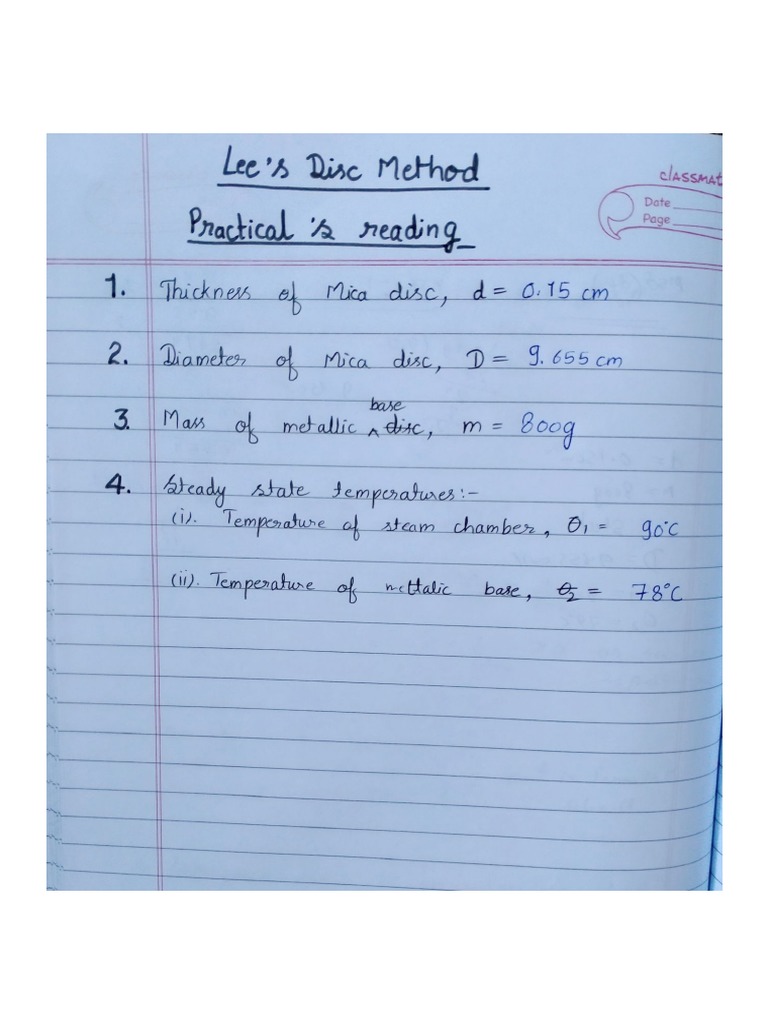 Lee's Disc Method
classmat
Date
Page
Practical's reading
1. Thickness of Mica disc, d = 0.15 cm
2. Diameter of Mica disc, D = 9.655 cm
base
3. Mass of metallic ^ disc, m = 800g
4. Steady state temperatures:-
(i). Temperature of steam chamber, θ1 = 90°C
(ii). Temperature of mettalic base, θ2 = 78°C